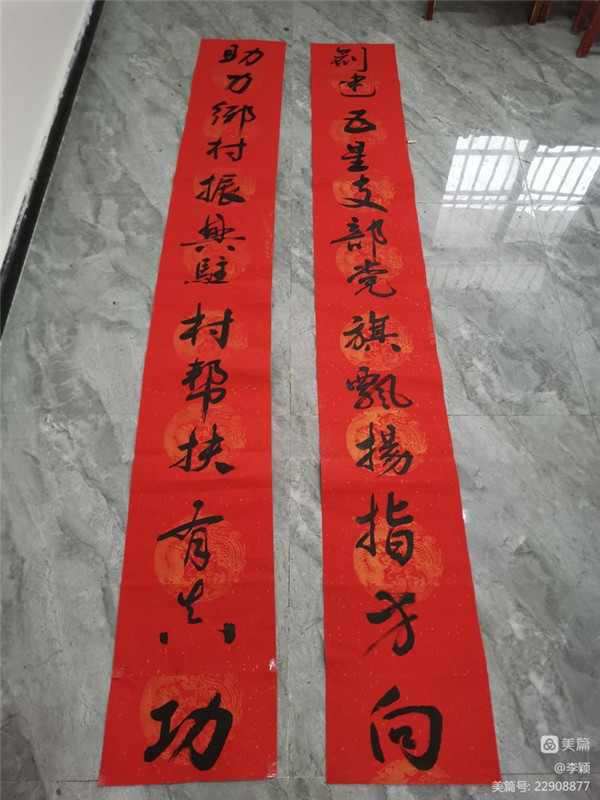 創建五星支部党旗飄揚指方向
助力鄉村振興駐村帮扶有真功
美篇
@李颖
美篇号: 22908877